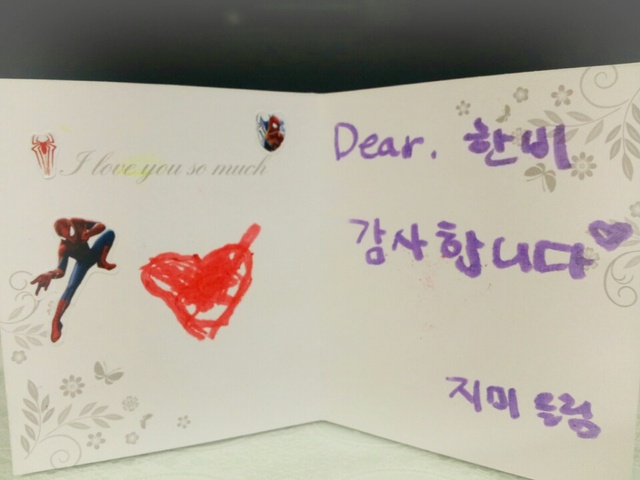 I love you so much
Dear. 한비
감사합니다
지미 드림